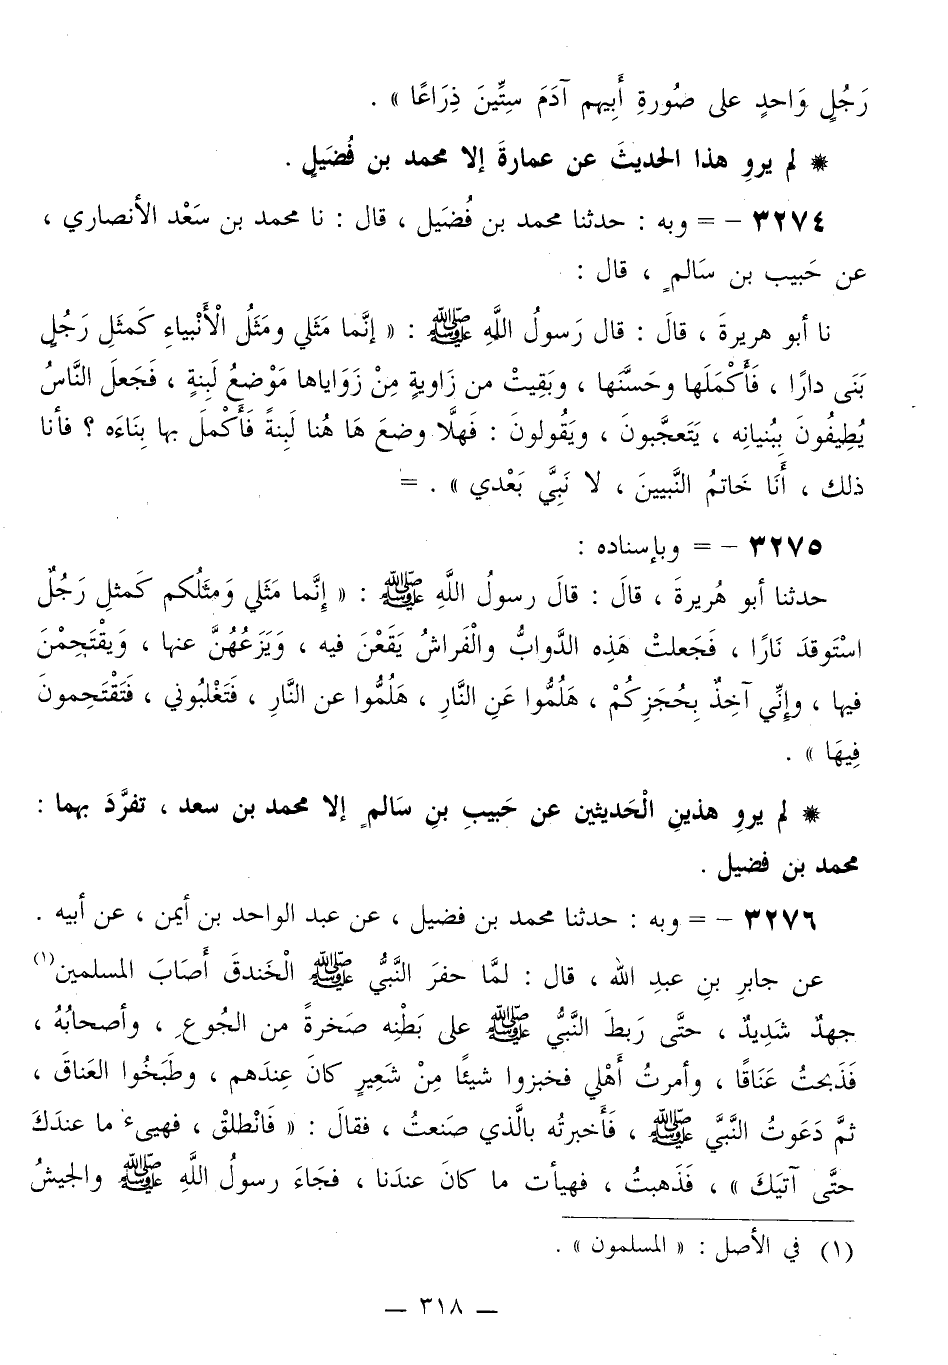 رَجُلٍ وَاحدٍ على صُورةِ أَبِيهم آدَمَ سِتِّينَ ذِرَاعًا » .
* لم يروِ هذا الحديثَ عن عمارةَ إلا محمد بن فُضَيلٍ .
٣٢٧٤ - = وبه : حدثنا محمد بن فُضَيل ، قال : نا محمد بن سَعْد الأنصاري ،
عن حَبيب بن سَالمٍ ، قال :
نا أبو هريرةَ ، قالَ : قال رَسولُ اللَّهِ ﷺ : « إنَّما مَثَلي ومَثَلُ الْأَنْبياءِ كَمثَلِ رَجُلٍ
بَنَى دارًا ، فَأَكْمَلَها وحَسَّنَها ، وبَقِيتْ من زَاويةٍ مِنْ زَوَاياها مَوْضعُ لَبِنةٍ ، فَجَعلَ النَّاسُ
يُطِيفُونَ بِبُنيانِه ، يَتَعجَّبونَ ، ويَقُولونَ : فَهلَّا وضعَ هَا هُنا لَبِنةً فَأَكْملَ بها بِنَاءَه ؟ فأنا
ذلك ، أَنَا خَاتمُ النَّبيينَ ، لا نَبِيَّ بَعْدي » . =
٣٢٧٥ - = وبإسناده :
حدثنا أبو هُريرةَ ، قالَ : قالَ رسولُ اللَّهِ ﷺ : « إِنَّما مَثَلي وَمِثَلُكم كَمثلِ رَجُلٌ
اسْتَوقدَ نَارًا ، فَجَعلتْ هَذِه الدَّوابُّ والْفَراشُ يَقَعْنَ فيه ، وَيَزَعُهُنَّ عنها ، وَيقْتَحِمْنَ
فيها ، وإنِّي آخِذٌ بِحُجَزِكُمْ ، هَلُمُّوا عَنِ النَّارِ ، هَلُمُّوا عن النَّارِ ، فَتَغْلبُوني ، فَتَقْتَحِمونَ
فِيهَا » .
* لم يروِ هذينِ الْحَديثين عن حَبيبِ بنِ سَالمٍ إلا محمد بن سعد ، تفرَّدَ بهما :
محمد بن فضيل .
٣٢٧٦ - = وبه : حدثنا محمد بن فضيل ، عن عبد الواحد بن أيمن ، عن أبيه .
عن جابرِ بنِ عبدِ الله ، قال : لمَّا حفرَ النَّبيُّ ﷺ الْخَندقَ أَصَابَ المسلمين(١)
جهدٌ شَدِيدٌ ، حتَّى رَبطَ النَّبيُّ ﷺ على بَطْنِه صَخرةً من الجُوعِ ، وأصحابُهُ ،
فَذَبحتُ عَنَاقًا ، وأمرتُ أَهْلي فخبزوا شيئًا مِنْ شَعِيرٍ كانَ عِندَهم ، وطَبَخُوا العَناقَ ،
ثمَّ دَعَوتُ النَّبيَّ ﷺ ، فَأَخبرتُه بالَّذي صَنَعتُ ، فقالَ : « فَانْطلقْ ، فهيىءْ ما عندَكَ
حتَّى آتيَكَ » ، فَذَهبتُ ، فهيأت ما كانَ عندَنا ، فجَاءَ رسولُ اللَّهِ ﷺ والجيشُ
(١) في الأصل : « المسلمون » .
— ٣١٨ —